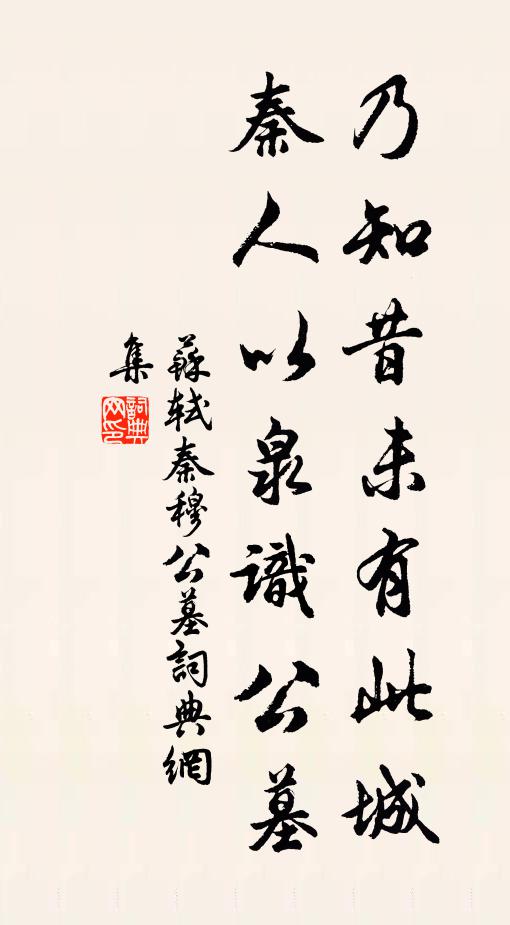 乃知昔未有此城
秦人以泉識公墓
蘇軾秦穆公墓詞典網
集
詞典網印